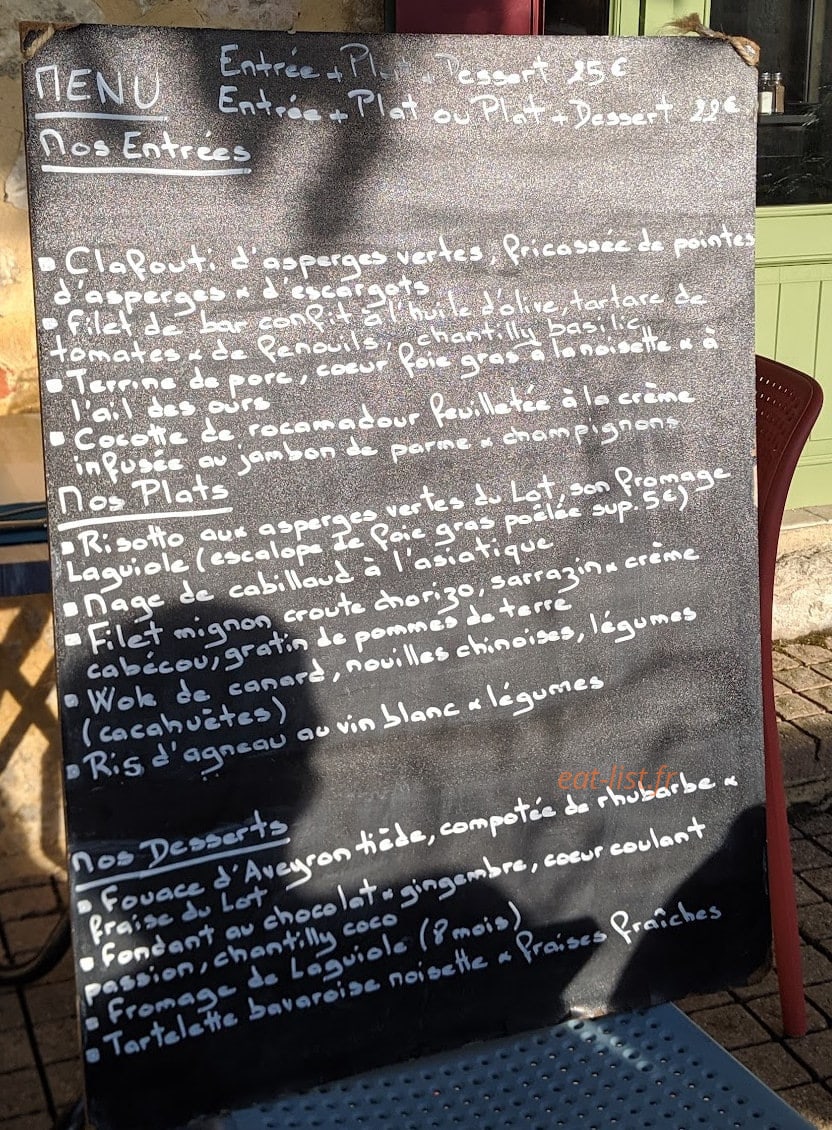 MENU
Entrée + Plat + Dessert 25€
Entrée + Plat ou Plat + Dessert 22€
Nos Entrées
▪ Clafouti d'asperges vertes, fricassée de pointes
d'asperges & d'escargots
▪ Filet de bar confit à l'huile d'olive, tartare de
tomates & de fenouils, chantilly basilic
▪ Terrine de porc, coeur foie gras à la noisette & à
l'ail des ours
▪ Cocotte de rocamadour feuilletée à la crème
infusée au jambon de parme & champignons
Nos Plats
▪ Risotto aux asperges vertes du Lot, son fromage
Laguiole (escalope de foie gras poêlée sup. 5€)
▪ Nage de cabillaud à l'asiatique
▪ Filet mignon croute chorizo, sarrazin & crème
cabécou, gratin de pommes de terre
▪ Wok de canard, nouilles chinoises, légumes
(cacahuètes)
▪ Ris d'agneau au vin blanc & légumes
eat-list.fr
Nos Desserts
▪ Fouace d'Aveyron tiède, compotée de rhubarbe &
fraise du Lot
▪ Fondant au chocolat & gingembre, coeur coulant
passion, chantilly coco
▪ Fromage de Laguiole (8 mois)
▪ Tartelette bavaroise noisette & fraises fraîches